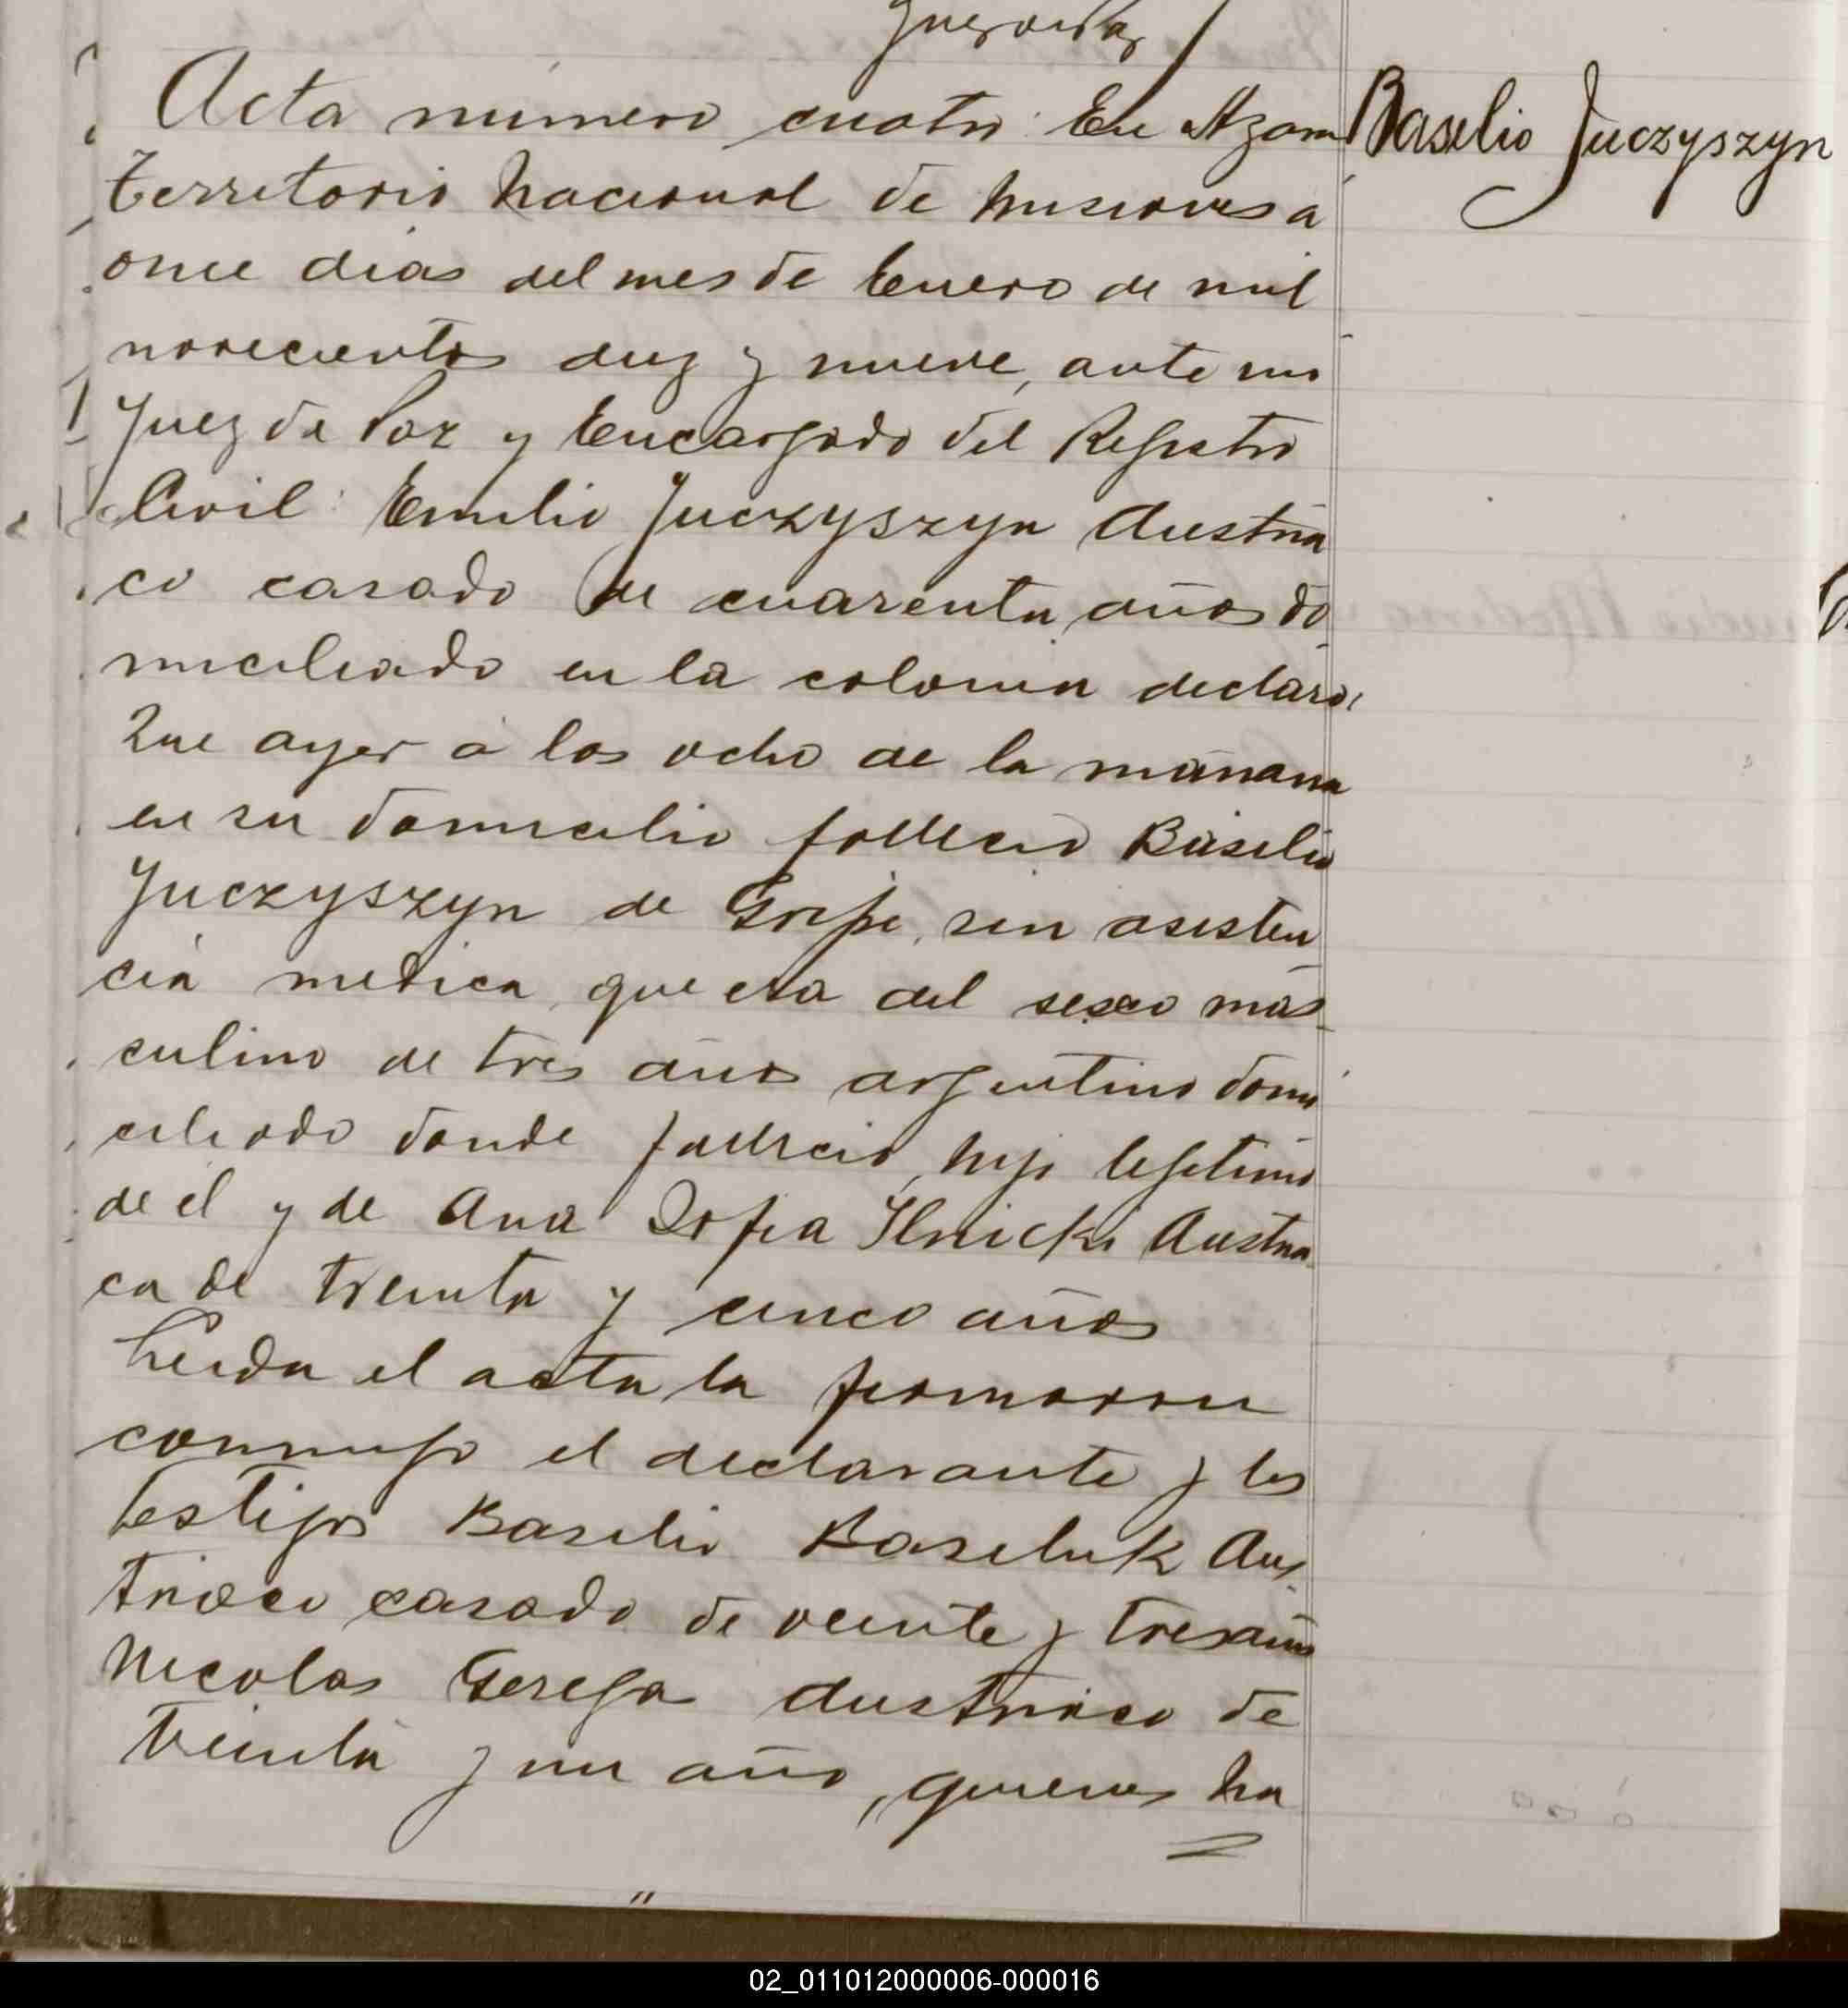 Juez de Paz
Acta número cuatro: En Azara
Basilio Juczyszyn
territorio Nacional de Misiones a
once dias del mes de Enero de mil
novecientos diez y nueve, ante mi
Juez de Paz y Encargado del Registro
Civil: Emilio Juczyszyn Austria
co casado de cuarenta años do
miciliado en la colonia declaró:
Que ayer á las ocho de la mañana
en su domicilio falleció Basilio
Juczyszyn de Gripe, sin asisten
cia medica que era del sexo mas
culino de tres años argentino domi
ciliado donde falleció, hijo legitimo
de él y de Ana Sofia Ilnicki Austria
ca de treinta y cinco años
Leida el acta la firmaron
conmigo el declarante y los
testigos Basilio Basiluk Aus
triaco casado de veinte y tres años
Nicolas Gerega Austriaco de
treinta y un año, quienes ha
02_011012000006-000016